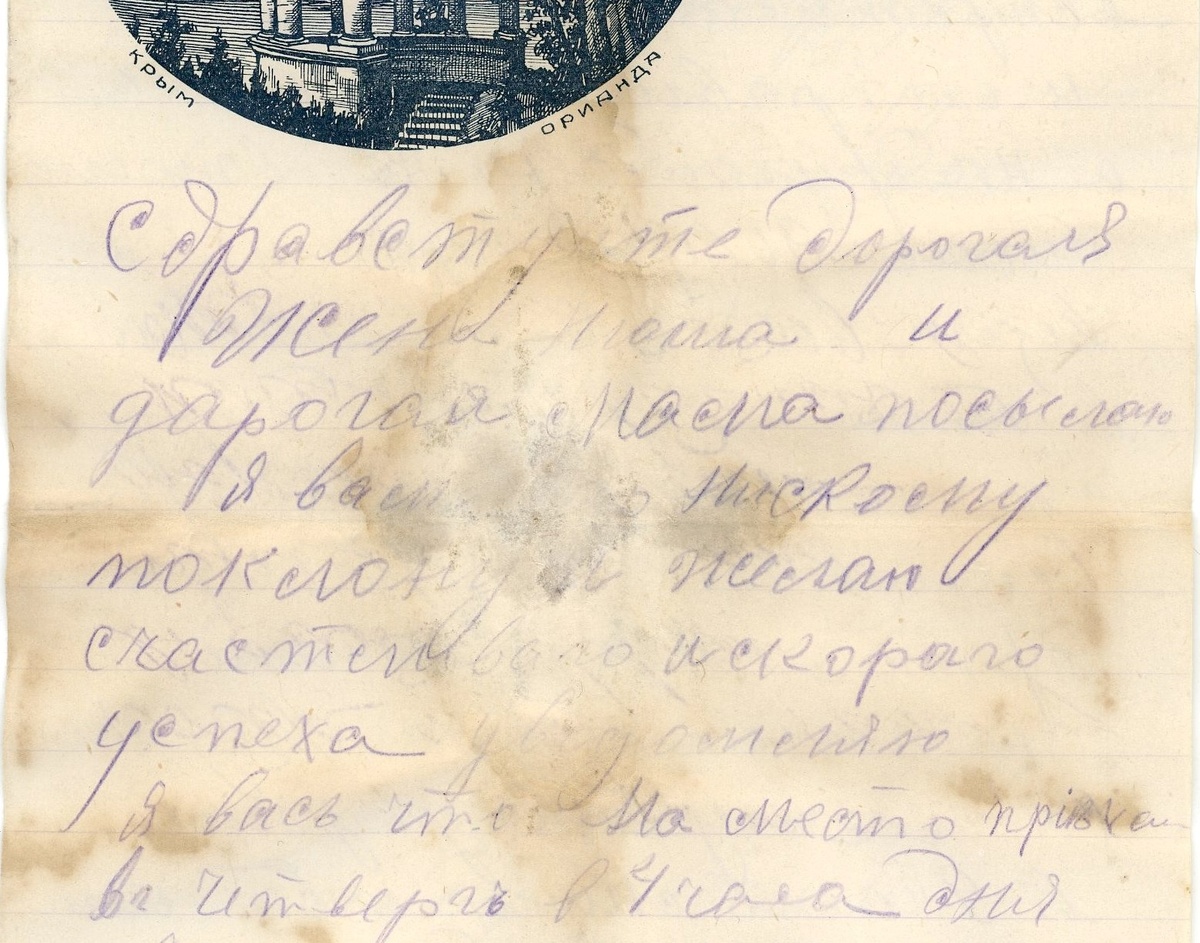 КРЫМ ОРИАНДА
Сдравствуйте дорогая
Жена и
дарогая мама посылаю
я вам нискому
поклону и желаю
счастливаго и скораго
успеха уведомляю
я вась что на место приехал
въ четвергъ в 4 часа дня